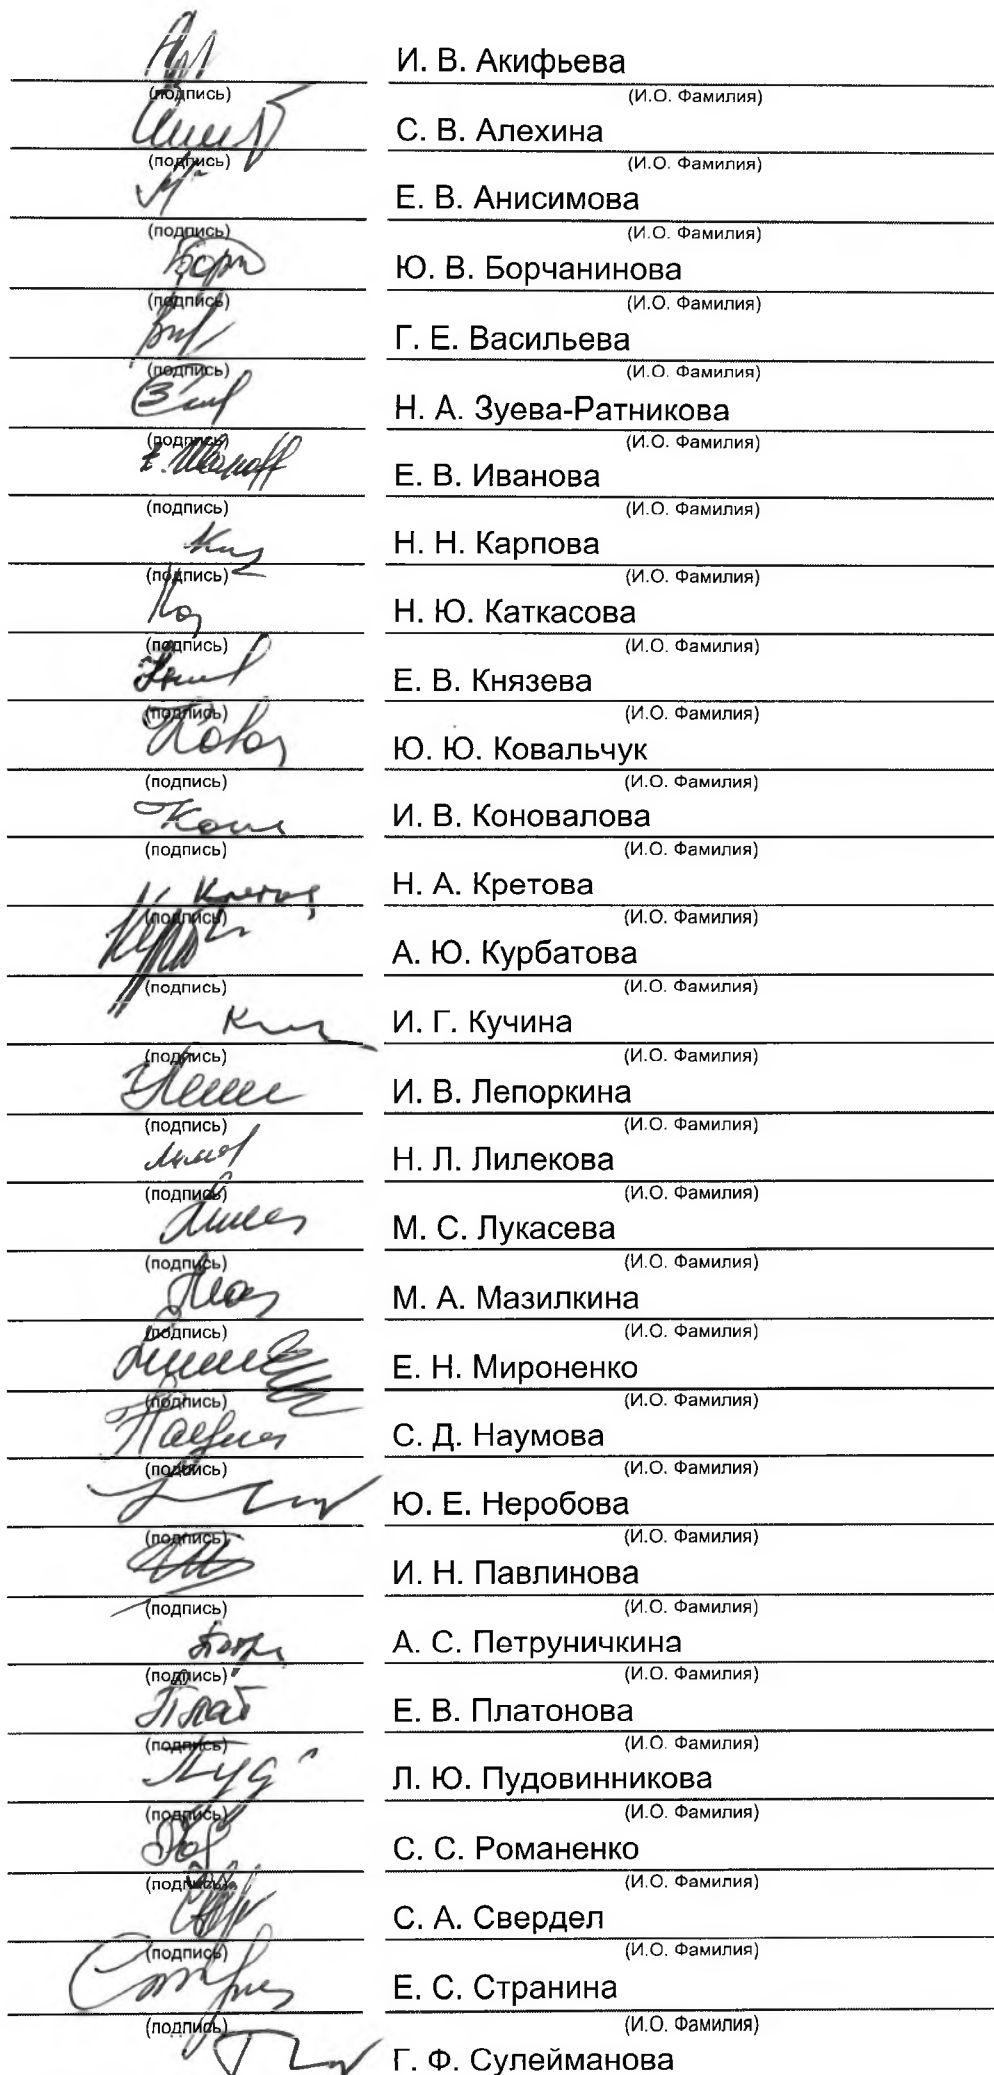 И. В. Акифьева
(подпись) (И.О. Фамилия)
С. В. Алехина
(подпись) (И.О. Фамилия)
Е. В. Анисимова
(подпись) (И.О. Фамилия)
Ю. В. Борчанинова
(подпись) (И.О. Фамилия)
Г. Е. Васильева
(подпись) (И.О. Фамилия)
Н. А. Зуева-Ратникова
(подпись) (И.О. Фамилия)
Е. В. Иванова
(подпись) (И.О. Фамилия)
Н. Н. Карпова
(подпись) (И.О. Фамилия)
Н. Ю. Каткасова
(подпись) (И.О. Фамилия)
Е. В. Князева
(подпись) (И.О. Фамилия)
Ю. Ю. Ковальчук
(подпись) (И.О. Фамилия)
И. В. Коновалова
(подпись) (И.О. Фамилия)
Н. А. Кретова
(подпись) (И.О. Фамилия)
А. Ю. Курбатова
(подпись) (И.О. Фамилия)
И. Г. Кучина
(подпись) (И.О. Фамилия)
И. В. Лепоркина
(подпись) (И.О. Фамилия)
Н. Л. Лилекова
(подпись) (И.О. Фамилия)
М. С. Лукасева
(подпись) (И.О. Фамилия)
М. А. Мазилкина
(подпись) (И.О. Фамилия)
Е. Н. Мироненко
(подпись) (И.О. Фамилия)
С. Д. Наумова
(подпись) (И.О. Фамилия)
Ю. Е. Неробова
(подпись) (И.О. Фамилия)
И. Н. Павлинова
(подпись) (И.О. Фамилия)
А. С. Петруничкина
(подпись) (И.О. Фамилия)
Е. В. Платонова
(подпись) (И.О. Фамилия)
Л. Ю. Пудовинникова
(подпись) (И.О. Фамилия)
С. С. Романенко
(подпись) (И.О. Фамилия)
С. А. Свердел
(подпись) (И.О. Фамилия)
Е. С. Странина
(подпись) (И.О. Фамилия)
Г. Ф. Сулейманова